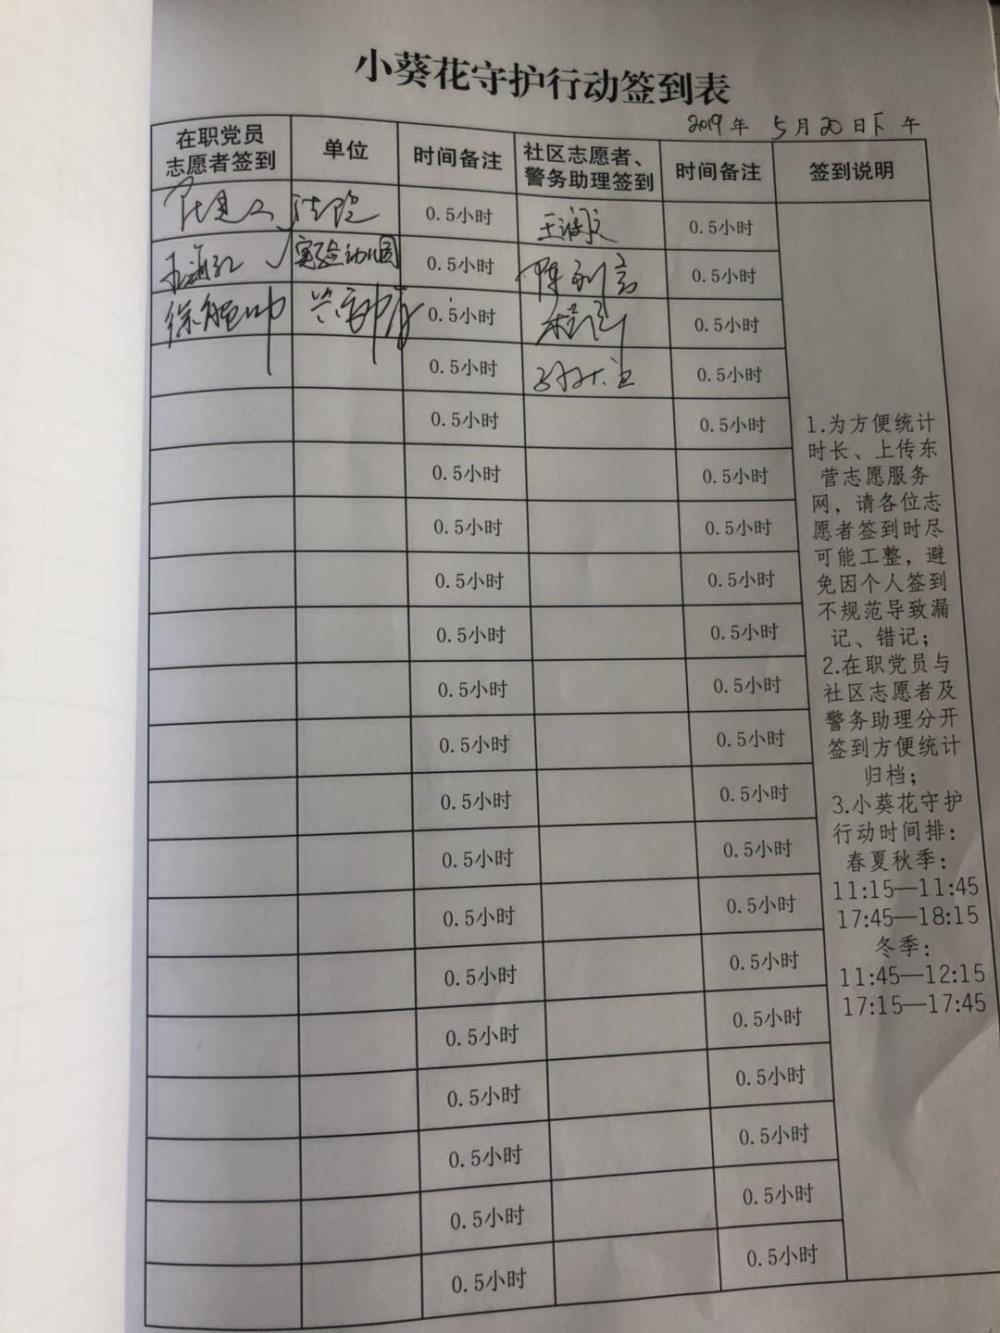 小葵花守护行动签到表
2019年 5月20日下午
在职党员志愿者签到 单位 时间备注 社区志愿者、警务助理签到 时间备注 签到说明
法院 0.5小时 0.5小时
实验幼儿园 0.5小时 0.5小时
0.5小时 0.5小时
0.5小时 0.5小时
0.5小时 0.5小时
0.5小时 0.5小时
0.5小时 0.5小时
0.5小时 0.5小时
0.5小时 0.5小时
0.5小时 0.5小时
0.5小时 0.5小时
0.5小时 0.5小时
0.5小时 0.5小时
0.5小时 0.5小时
0.5小时 0.5小时
0.5小时 0.5小时
0.5小时 0.5小时
0.5小时 0.5小时
0.5小时 0.5小时
0.5小时 0.5小时
1.为方便统计
时长、上传东
营志愿服务
网，请各位志
愿者签到时尽
可能工整，避
免因个人签到
不规范导致漏
记、错记；
2.在职党员与
社区志愿者及
警务助理分开
签到方便统计
归档；
3.小葵花守护
行动时间排：
春夏秋季：
11:15—11:45
17:45—18:15
冬季：
11:45—12:15
17:15—17:45